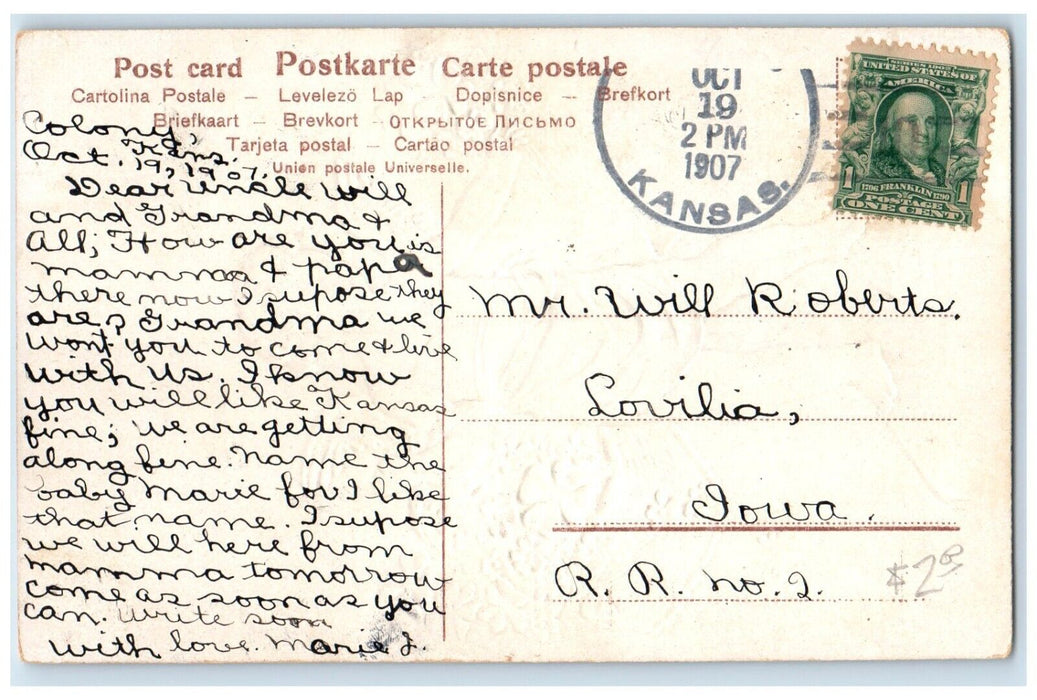 Post card Postkarte Carte postale
Cartolina Postale – Levelezö Lap – Dopisnice – Brefkort
Briefkaart – Brevkort – ОТКРЫТОЕ ПИСЬМО
Tarjeta postal – Cartão postal
Union postale Universelle.
OCT
19
2 PM
1907
KANSAS.
SERIES 1902
UNITED STATES OF
AMERICA
1 1706 FRANKLIN 1790 1
POSTAGE
ONE CENT
Colony,
Kans.
Oct. 19, 1907.
Dear uncle Will
and Grandma &
all; How are you is
mamma & papa
there now I supose they
are? Grandma we
wont you to come & live
with us. I know
you will like Kansas
fine; we are getting
along fine. Name the
baby Marie for I like
that name. I supose
we will here from
mamma tomorrow
come as soon as you
can. write soon
with love. Marie J.
Mr. Will Roberts.
Lovilia,
Iowa.
R. R. no. 2.
$2.00